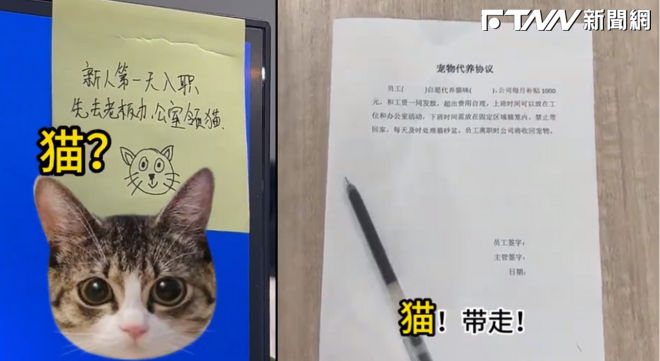 FTNN 新聞網
新人第一天入职
先去老板办公室领猫.
猫?
宠物代养协议
员工( )自愿代养猫咪( ),公司每月补贴1000
元,和工资一同发放,超出费用自理,上班时间可以放在工
位和办公室活动,下班时间需放在固定区域猫笼内,禁止带
回家,每天及时处理猫砂盆,员工离职时公司将收回宠物。
员工签字:
主管签字:
日期:
猫!带走!